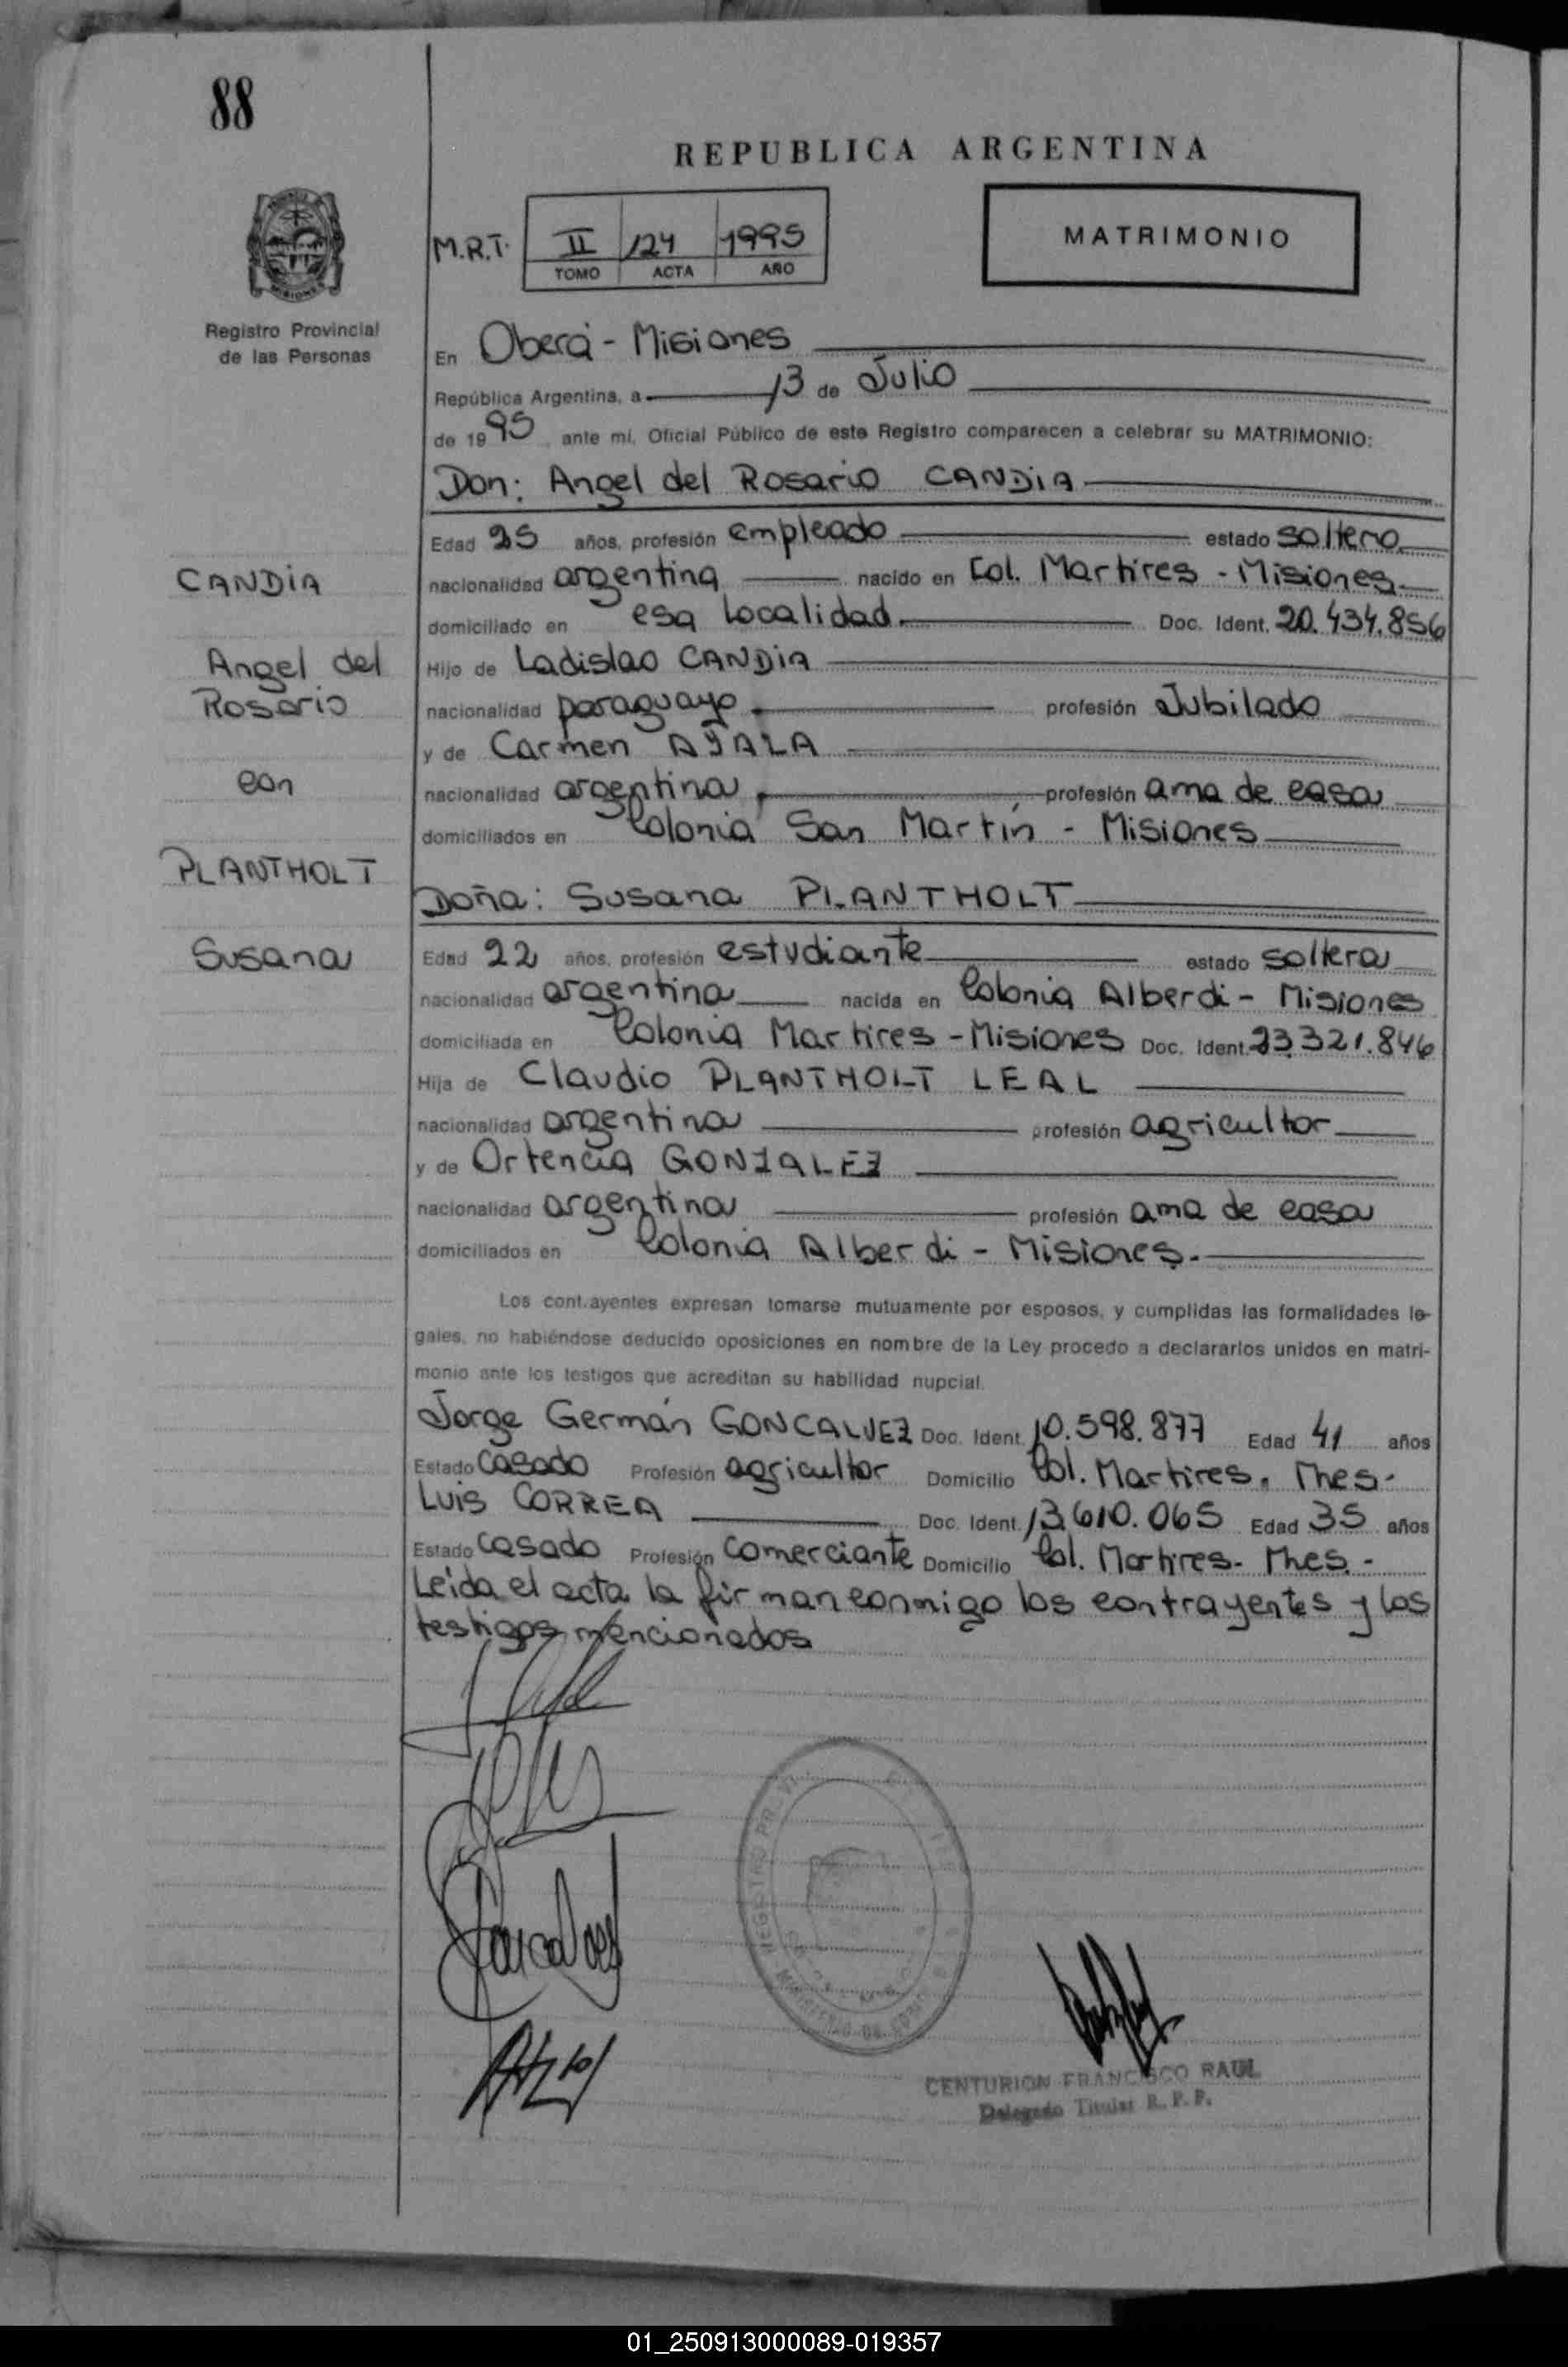 88
REPUBLICA ARGENTINA
M.R.T. II 124 1995
TOMO ACTA AÑO
MATRIMONIO
MISIONES
Registro Provincial
de las Personas
En Oberá - Misiones
República Argentina, a 13 de Julio
de 1995 ante mí, Oficial Público de este Registro comparecen a celebrar su MATRIMONIO:
Don: Angel del Rosario CANDIA
Edad 25 años, profesión empleado estado soltero
nacionalidad argentina nacido en Col. Martires - Misiones
domiciliado en esa localidad Doc. Ident. 20.434.856
Hijo de Ladislao CANDIA
nacionalidad paraguayo profesión Jubilado
y de Carmen AYALA
nacionalidad argentina profesión ama de casa
domiciliados en Colonia San Martín - Misiones
Doña: Susana PLANTHOLT
Edad 22 años, profesión estudiante estado soltera
nacionalidad argentina nacida en Colonia Alberdi - Misiones
domiciliada en Colonia Martires - Misiones Doc. Ident. 23.321.846
Hija de Claudio PLANTHOLT LEAL
nacionalidad argentina profesión agricultor
y de Ortencia GONZALEZ
nacionalidad argentina profesión ama de casa
domiciliados en Colonia Alberdi - Misiones.
CANDIA
Angel del
Rosario
con
PLANTHOLT
Susana
Los cont.ayentes expresan tomarse mutuamente por esposos, y cumplidas las formalidades le-
gales, no habiéndose deducido oposiciones en nombre de la Ley procedo a declararlos unidos en matri-
monio ante los testigos que acreditan su habilidad nupcial.
Jorge Germán GONCALVEZ Doc. Ident. 10.598.877 Edad 41 años
Estado casado Profesión agricultor Domicilio Col. Martires. Mnes.
Luis CORREA Doc. Ident. 13.610.065 Edad 35 años
Estado casado Profesión comerciante Domicilio Col. Martires- Mnes.-
Leída el acta la firman conmigo los contrayentes y los
testigos mencionados
CENTURION FRANCISCO RAUL
Delegado Titular R. P. P.
01_250913000089-019357